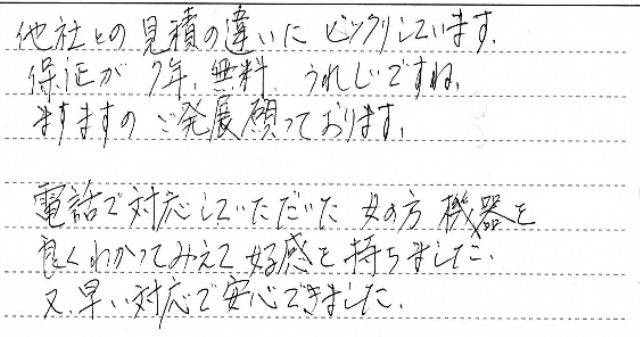 他社との見積の違いにビックリしています。
保証が7年、無料、うれしいですね。
ますますのご発展願っております。
電話で対応していただいた女の方機器を
良くわかってみえて好感を持ちました。
又、早い対応で安心できました。